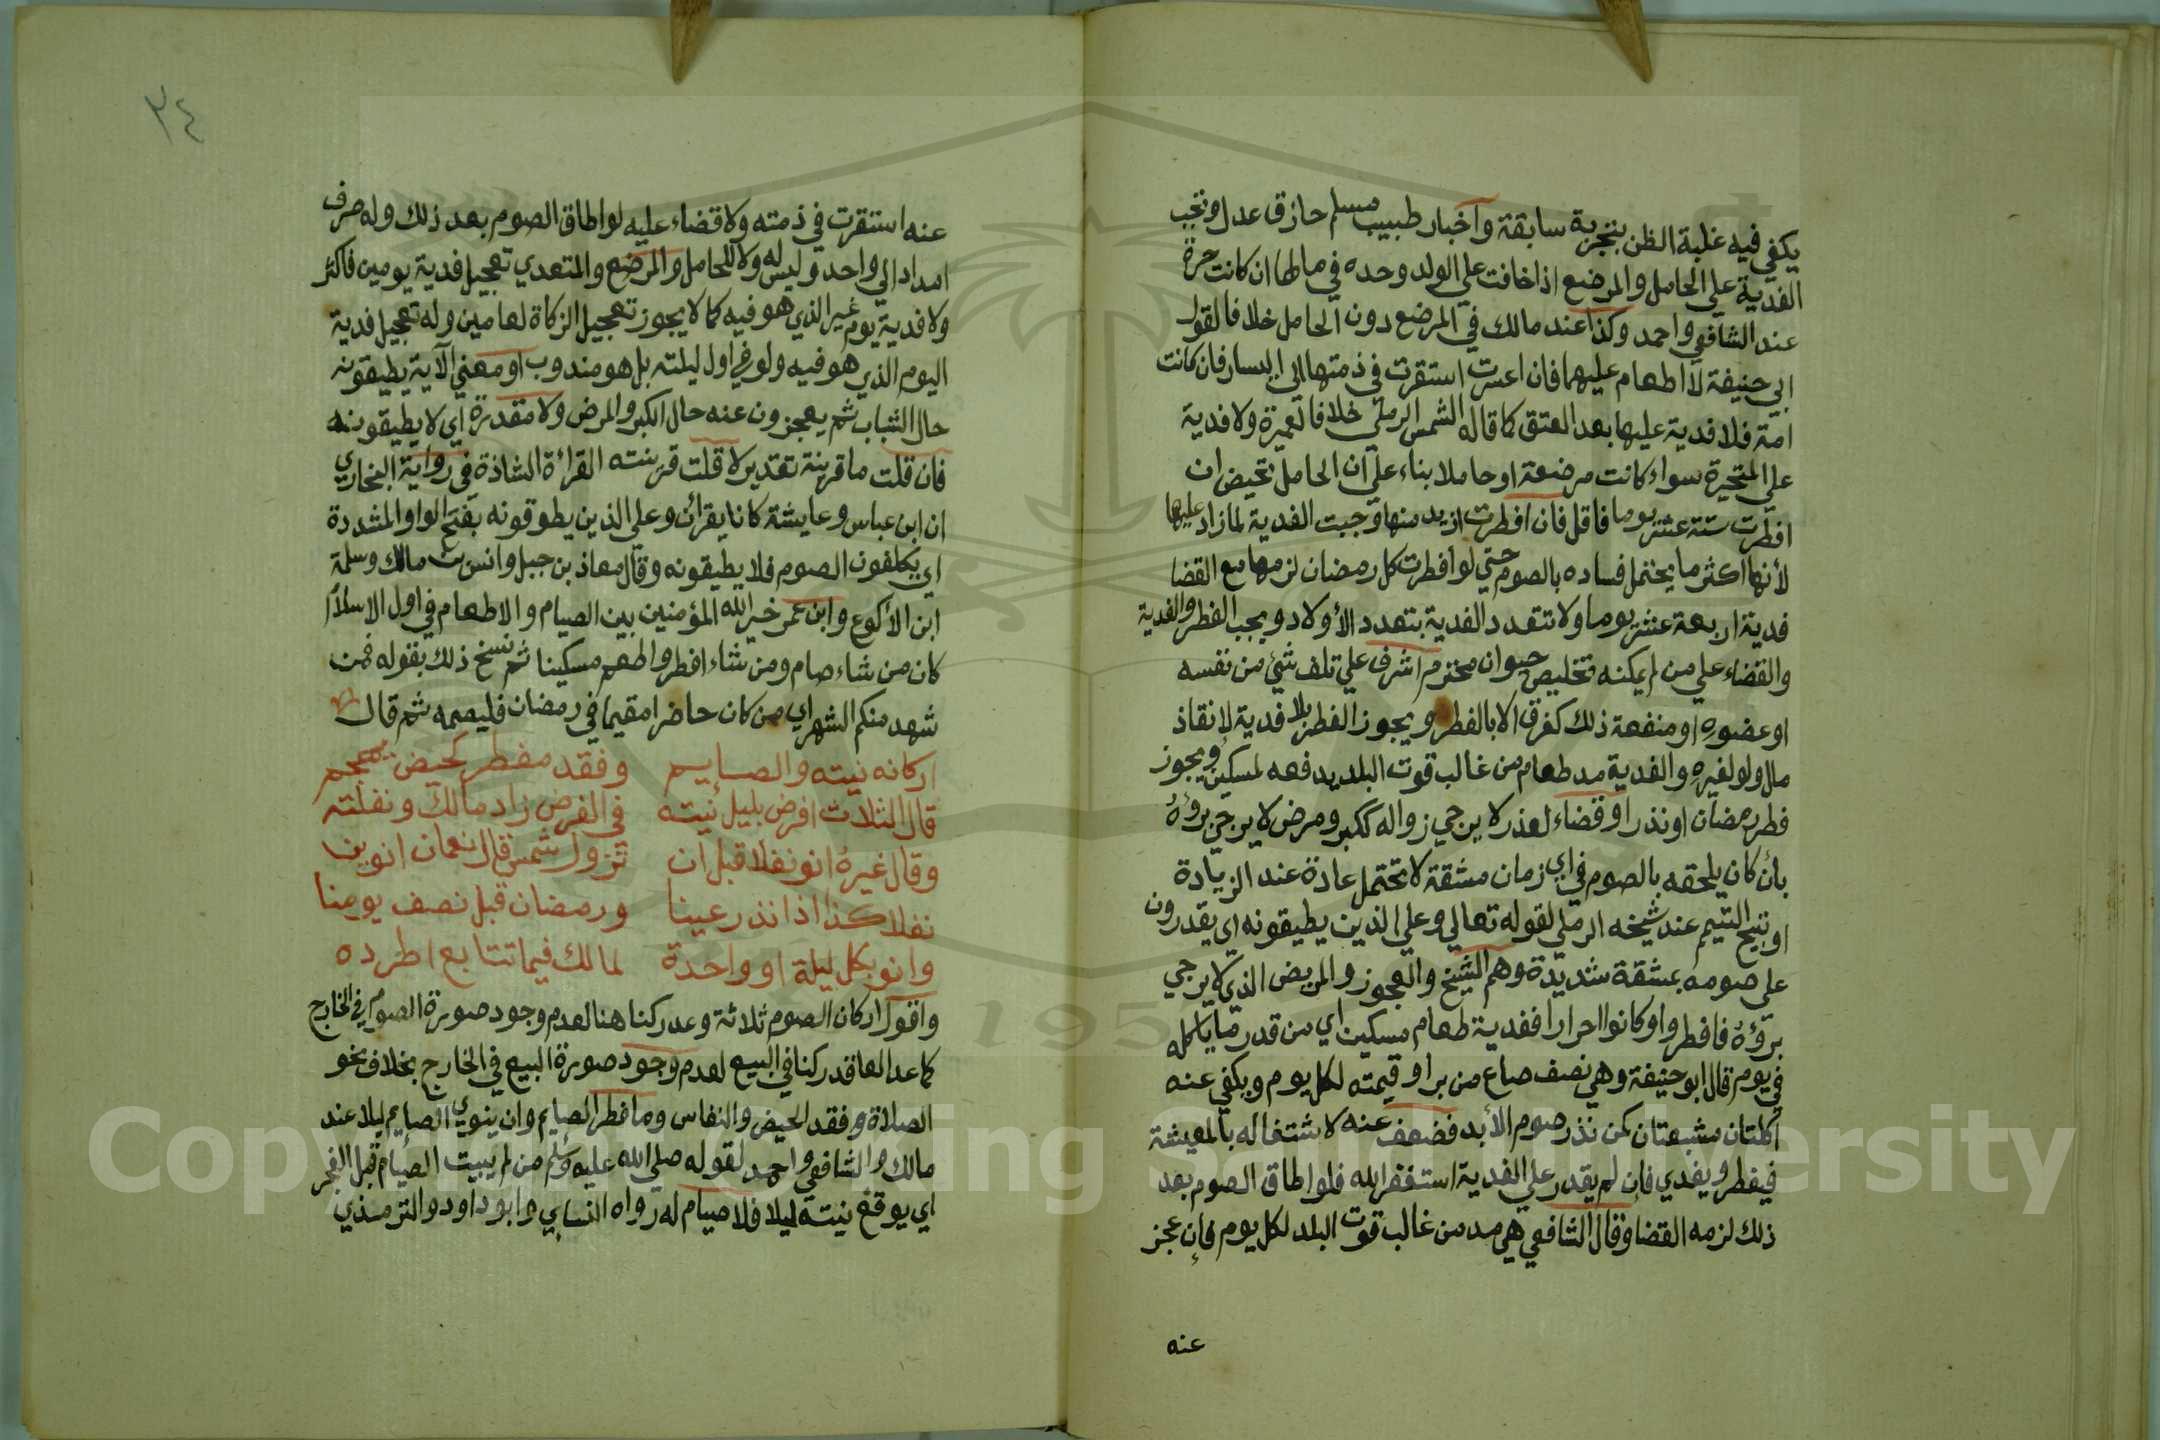 يكفي فيه غلبة الظن بتجربة سابقة واخبار طبيب مسلم حاذق عدل وتجب
الفدية علي الحامل والمرضع اذا خافت علي الولد وحده في مالها ان كانت حرة
عند الشافعي واحمد وكذا عند مالك في المرضع دون الحامل خلافا لقول
ابي حنيفة لا اطعام عليهما فان اعسرت استقرت في ذمتها الي اليسار فان كانت
امة فلا فدية عليها بعد العتق كما قاله الشمس الرملي خلافا لعميرة ولا فدية
علي المتحيرة سواء كانت مرضعة او حاملا بناء علي ان الحامل تحيض ان
افطرت ستة عشر يوما فاقل فان افطرت ازيد منها وجبت الفدية لما زاد عليها
لأنها اكثر ما يحتمل فساده بالصوم حتي لو افطرت كل رمضان لزمها مع القضا
فدية اربعة عشر يوما ولا تتعدد الفدية بتعدد الأولاد ويجب الفطر والفدية
والقضاء علي من لم يمكنه تخليص حيوان محترم اشرف علي تلف شئ من نفسه
او عضوه او منفعة ذلك كغرق الا بالفطر ويجوز الفطر بلا فدية لانقاذ
مال ولو لغيره والفدية مد طعام من غالب قوت البلد يدفعه لمسكين ويجوز
فطر رمضان او نذر او قضاء لعذر لا يرجي زواله ككبر ومرض لا يرجي برؤه
بأن كان يلحقه بالصوم في اي زمان مشقة لا تحتمل عادة عند الزيادة
او تبيح التيمم عند شيخه الرملي لقوله تعالي وعلي الذين يطيقونه اي يقدرون
علي صومه بمشقة شديدة وهم الشيخ والعجوز والمريض الذي لا يرجي
برؤه فافطروا وكانوا احرارا ففدية طعام مسكين اي من قدر ما ياكله
في يوم قال ابو حنيفة وهي نصف صاع من بر او قيمته لكل يوم ويكفي عنه
اكلتان مشبعتان كمن نذر صوم الأبد فضعف عنه لاشتغاله بالمعيشة
فيفطر ويفدي فان لم يقدر علي الفدية استغفر الله فلو اطاق الصوم بعد
ذلك لزمه القضا وقال الشافعي هي مد من غالب قوت البلد لكل يوم فان عجز
عنه
٣٤
عنه استقرت في ذمته ولا قضاء عليه لو اطاق الصوم بعد ذلك وله صرف
امداد الي واحد وليس له ولا للحامل والمرضع والمتعدي تعجيل فدية يومين فاكثر
ولا فدية يوم غير الذي هو فيه كما لا يجوز تعجيل الزكاة لعامين وله تعجيل فدية
اليوم الذي هو فيه ولو في اول ليلته بل هو مندوب او معني الآية يطيقونه
حال الشباب ثم يعجزون عنه حال الكبر والمرض ولا مقدرة اي لا يطيقونه
فان قلت ما قرينة تقدير لا قلت قرينته القراءة الشاذة في رواية البخاري
ان ابن عباس وعايشة كانا يقرآن وعلي الذين يطوقونه بفتح الواو المشددة
اي يكلفون الصوم فلا يطيقونه وقال معاذ بن جبل وانس بن مالك وسلمة
ابن الأكوع وابن عمر خير الله المؤمنين بين الصيام والاطعام في اول الاسلام
كان من شاء صام ومن شاء افطر واطعم مسكينا ثم نسخ ذلك بقوله فمن
شهد منكم الشهر اي من كان حاضرا مقيما في رمضان فليصمه ثم قال
اركانه نيته والصايم وفقد مفطر كحيض
قال الثلاث افرض بليل نيته في الفرض زاد مالك ونفلته
وقال غيره انو نفلا قبل ان تزول شمس قال نعمان انوين
نفلا كذا اذا نذر عينا ورمضان قبل نصف يومنا
وانو بكل ليلة او واحدة لمالك فيما تتابع اطرده
واقول اركان الصوم ثلاثة وعد ركنا هنا لعدم وجود صورة الصوم في الخارج
كما عد العاقد ركنا في البيع لعدم وجود صورة البيع في الخارج بخلاف نحو
الصلاة وفقد الحيض والنفاس وما فطر الصايم وان ينوي الصايم ليلا عند
مالك والشافعي واحمد لقوله صلي الله عليه وسلم من لم يبيت الصيام قبل الفجر
اي يوقع نيته ليلا فلا صيام له رواه النسايي وابو داود والترمذي